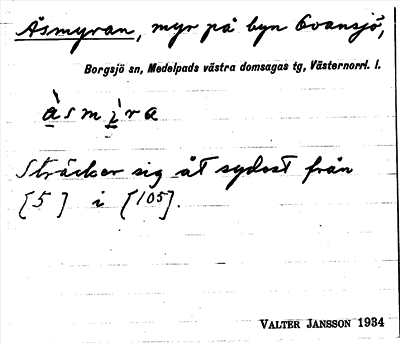 Åsmyran, myr på byn Ovansjö,
Borgsjö sn, Medelpads västra domsagas tg, Västernorrl. l.
Sträcker sig åt sydost från
[5] i [105].
VALTER JANSSON 1934